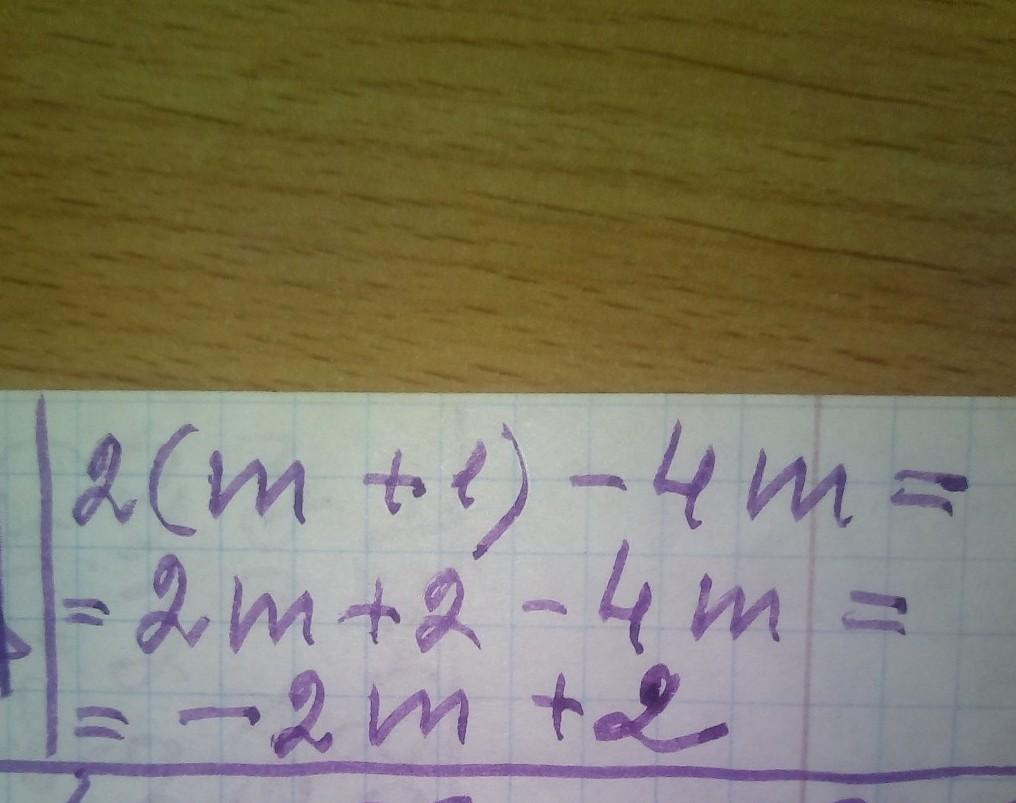 2(m+1)-4m=
=2m+2-4m=
=-2m+2